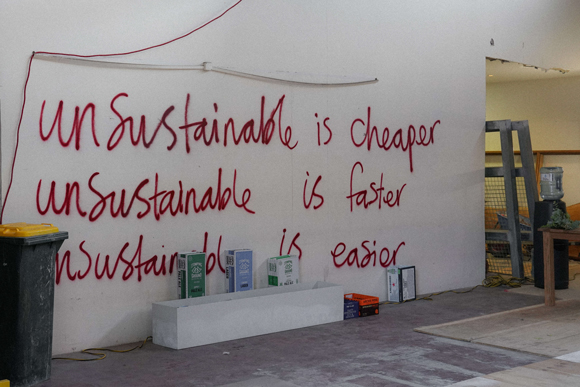 unsustainable is cheaper
unsustainable is faster
unsustainabl is easier